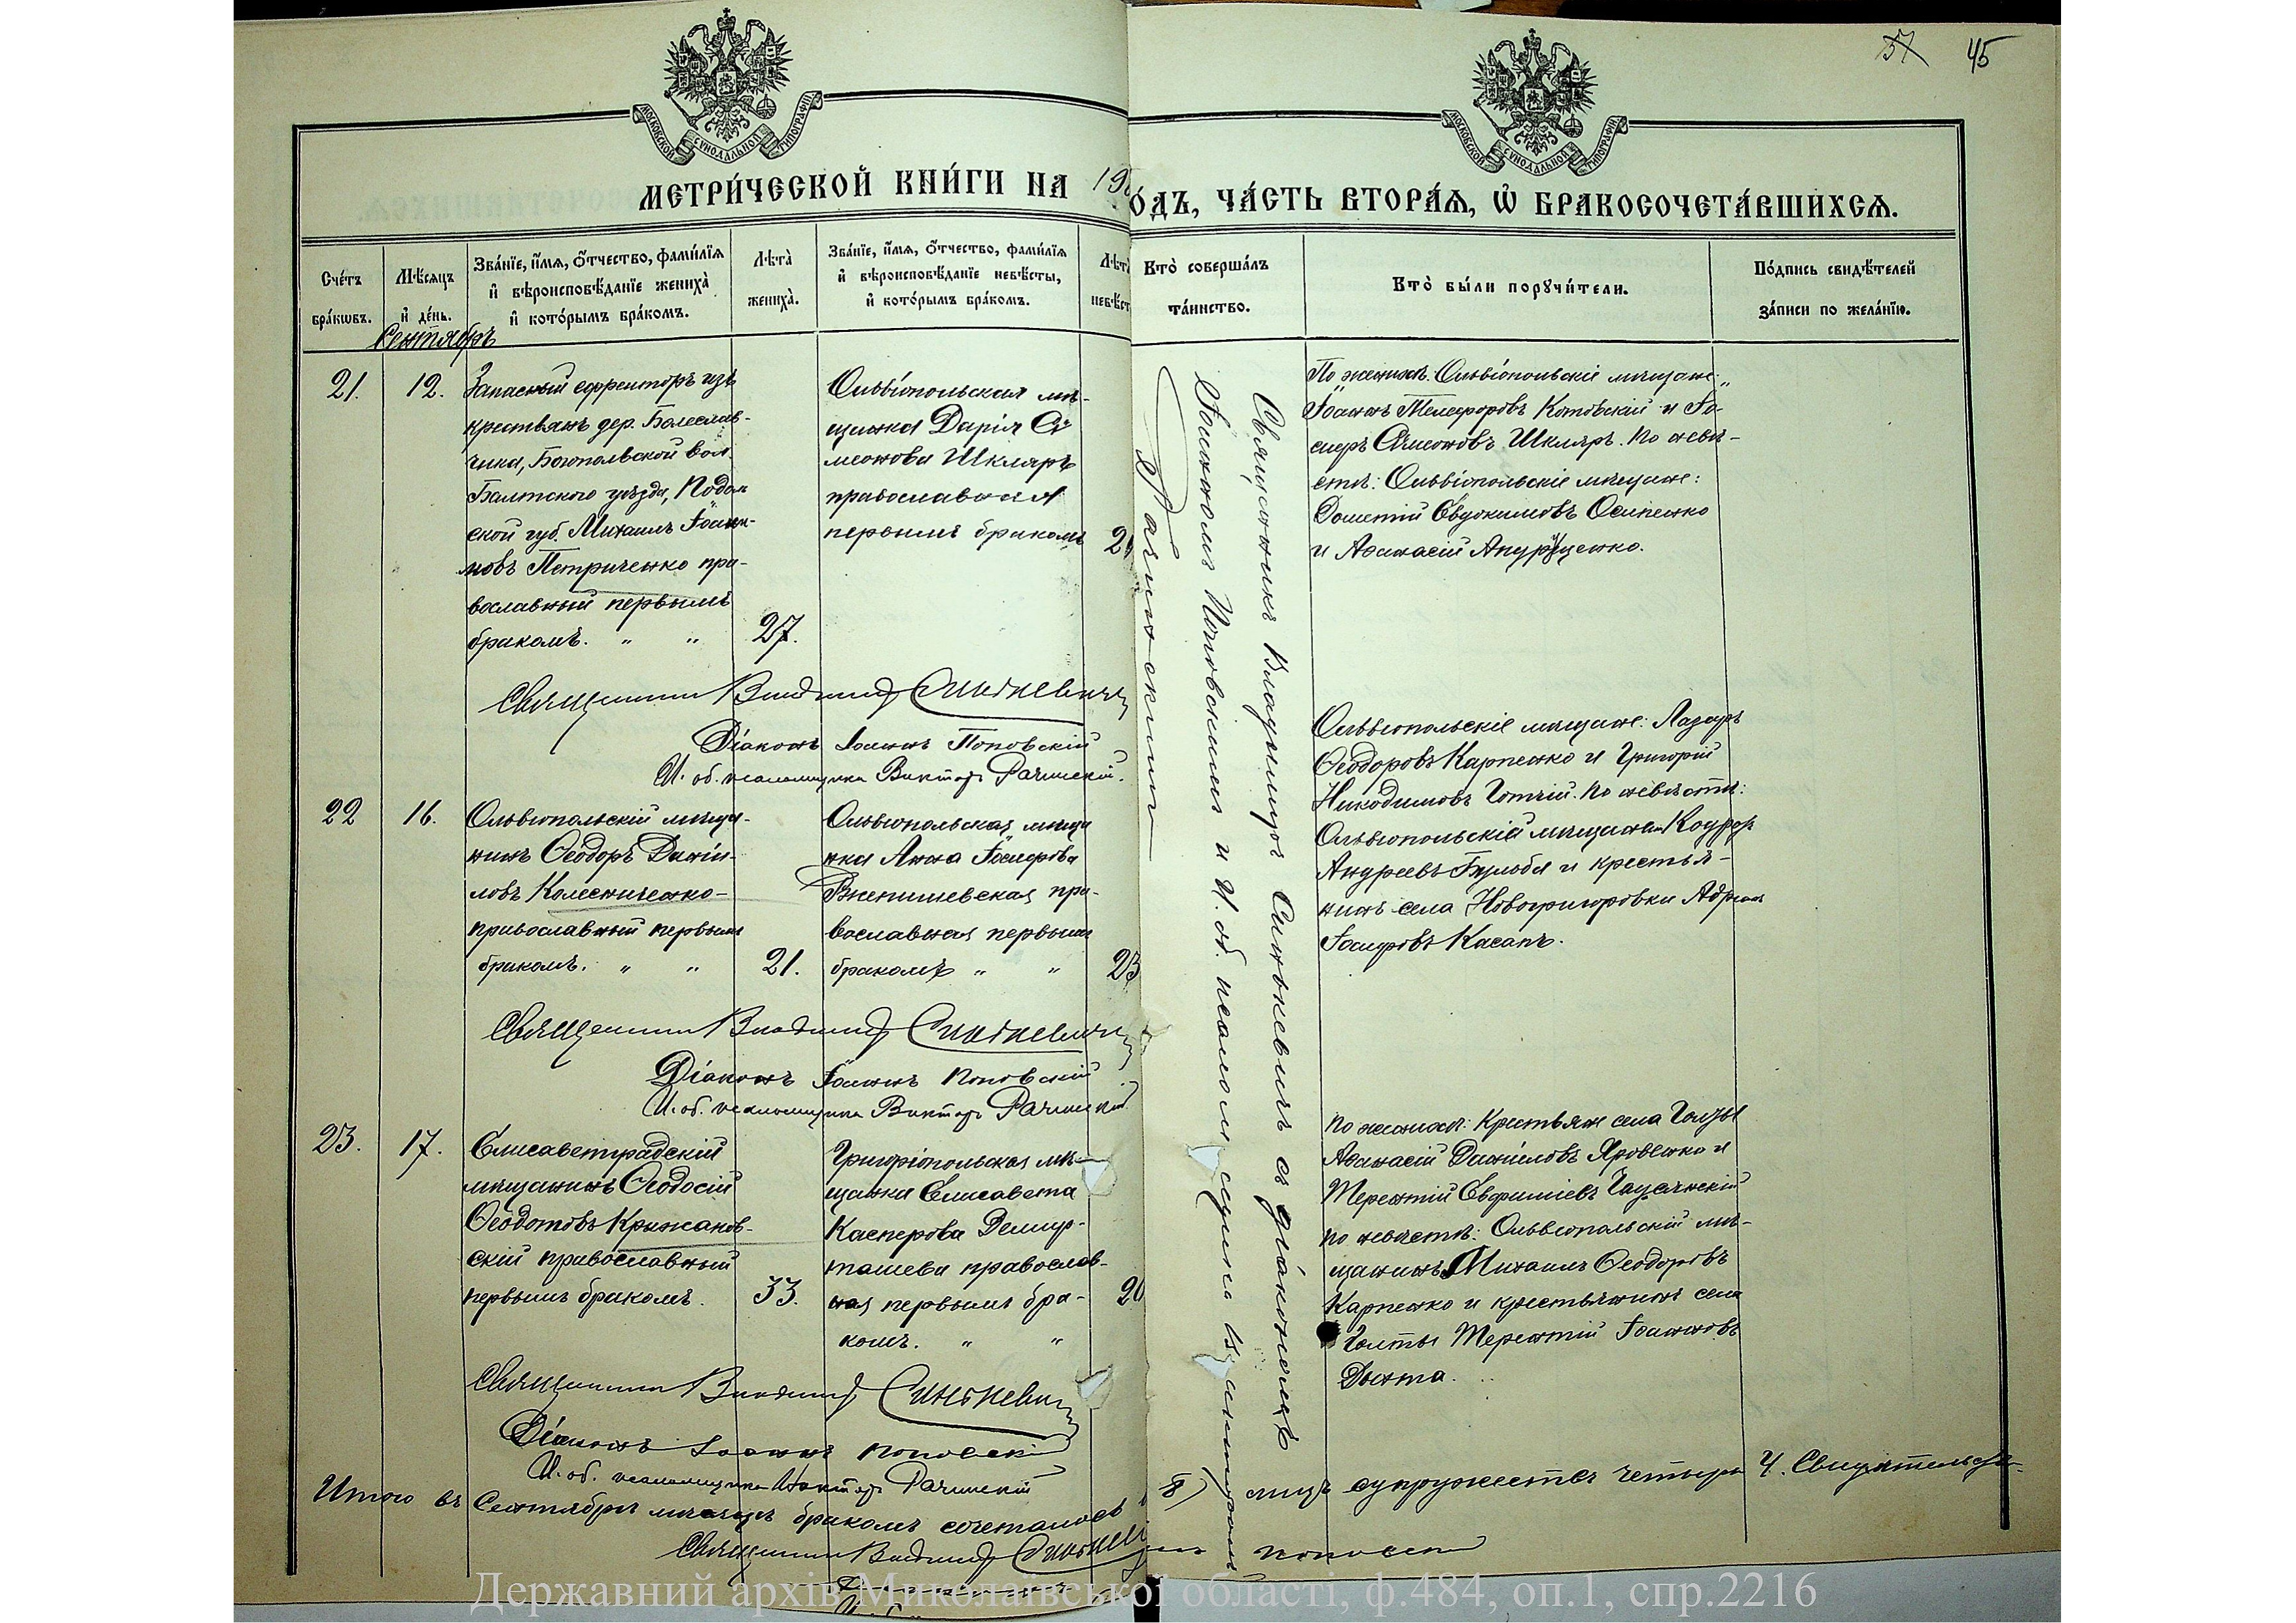 57 45
МОСКОВСКОЙ СѴНОДАЛЬНОЙ ТИПОГРАФІИ
МОСКОВСКОЙ СѴНОДАЛЬНОЙ ТИПОГРАФІИ
МЕТРИ́ЧЕСКОЙ КНИ́ГИ НА 19
ОДЪ, ЧА́СТЬ ВТОРА́Ѧ, Ѡ҆ БРАКОСОЧЕТА́ВШИХСѦ.
Сче́тъ бра́кѡвъ.
Мѣ́сѧцъ и҆ де́нь.
Зва́нїе, и҆́мѧ, ѻ҆́тчество, фами́лїѧ и҆ вѣроисповѣ́данїе жениха̀ и҆ кото́рымъ бра́комъ.
Лѣта̀ жениха̀.
Зва́нїе, и҆́мѧ, ѻ҆́тчество, фами́лїѧ и҆ вѣроисповѣ́данїе невѣ́сты, и҆ кото́рымъ бра́комъ.
Лѣта̀ невѣст
Кто̀ соверша́лъ та́инство.
Кто̀ бы́ли порꙋчи́тели.
По́дпись свидѣ́телей за́писи по жела́нїю.
Сентябрь
21.
12.
Запасный ефрейторъ изъ
крестьянъ дер. Болеслав-
чика, Богопольской вол.
Балтского уѣзда, Подол
ской губ. Михаилъ Іоан-
новъ Петриченко пра-
вославный первымъ
бракомъ. " "
27.
Ольвіопольская мѣ-
щанка Дарія Си
меонова Шкляръ
православная
первымъ бракомъ
2
По женихѣ: Ольвіопольскіе мѣщане:
Іоаннъ Телесфоровъ Котовскій и Іо-
сифъ Симеоновъ Шкляръ. По невѣ-
стѣ: Ольвіопольскіе мѣщане:
Дометій Евдокимовъ Осипенко
и Аѳанасій Андрущенко.
Священникъ Владимиръ Синькевичъ съ діакономъ
Іоанномъ Поповскимъ и И. об. псаломщика Викторомъ
Рачинскимъ
Священникъ Владимиръ Синькевичъ
Діаконъ Іоаннъ Поповскій
И. об. псаломщика Викторъ Рачинскій.
22
16.
Ольвіопольскій мѣща-
нинъ Ѳеодоръ Даніи-
ловъ Колесниченко
православный первымъ
бракомъ. " "
21.
Ольвіопольская мѣща
нка Анна Іосифова
православная первымъ
бракомъ " "
23
Ольвіопольскіе мѣщане: Лазарь
Ѳеодоровъ Карпенко и Григорій
Никодимовъ Готчій. По невѣстѣ:
Ольвіопольскій мѣщанин Кодрор
Андреевъ Бульба и крестья-
нинъ села Новогригоровки Адріанъ
Іосифовъ Касапъ.
Священникъ Владимиръ Синькевичъ
Діаконъ Іоаннъ Поповскій
И. об. псаломщика Викторъ Рачинскій.
23.
17.
Елисаветградскій
мѣщанинъ Ѳеодосій
Ѳеодотовъ Крижанов-
скій православный
первымъ бракомъ.
33.
Григоріопольская мѣ-
щанка Елисавета
Касперова Демир-
ташева православ-
ная первымъ бра-
комъ. " "
20
По женихѣ: Крестьяне села Голты
Аѳанасій Даніиловъ Яровенко и
Терентій Евфиміевъ
по невѣстѣ: Ольвіопольскій мѣ-
щанинъ Михаилъ Ѳеодоровъ
Карпенко и крестьянинъ села
Голты Терентій Іоанновъ
Дынта.
Священникъ Владимиръ Синькевичъ
Діаконъ Іоаннъ Поповскій
И. об. псаломщика Викторъ Рачинскій
Итого въ Сентябрѣ мѣсяцѣ бракомъ сочеталось 8) лицъ супружествъ четыре 4. Свидѣтельству-
Священникъ Владимиръ Поповскій
Державний архів Миколаївської області, ф.484, оп.1, спр.2216